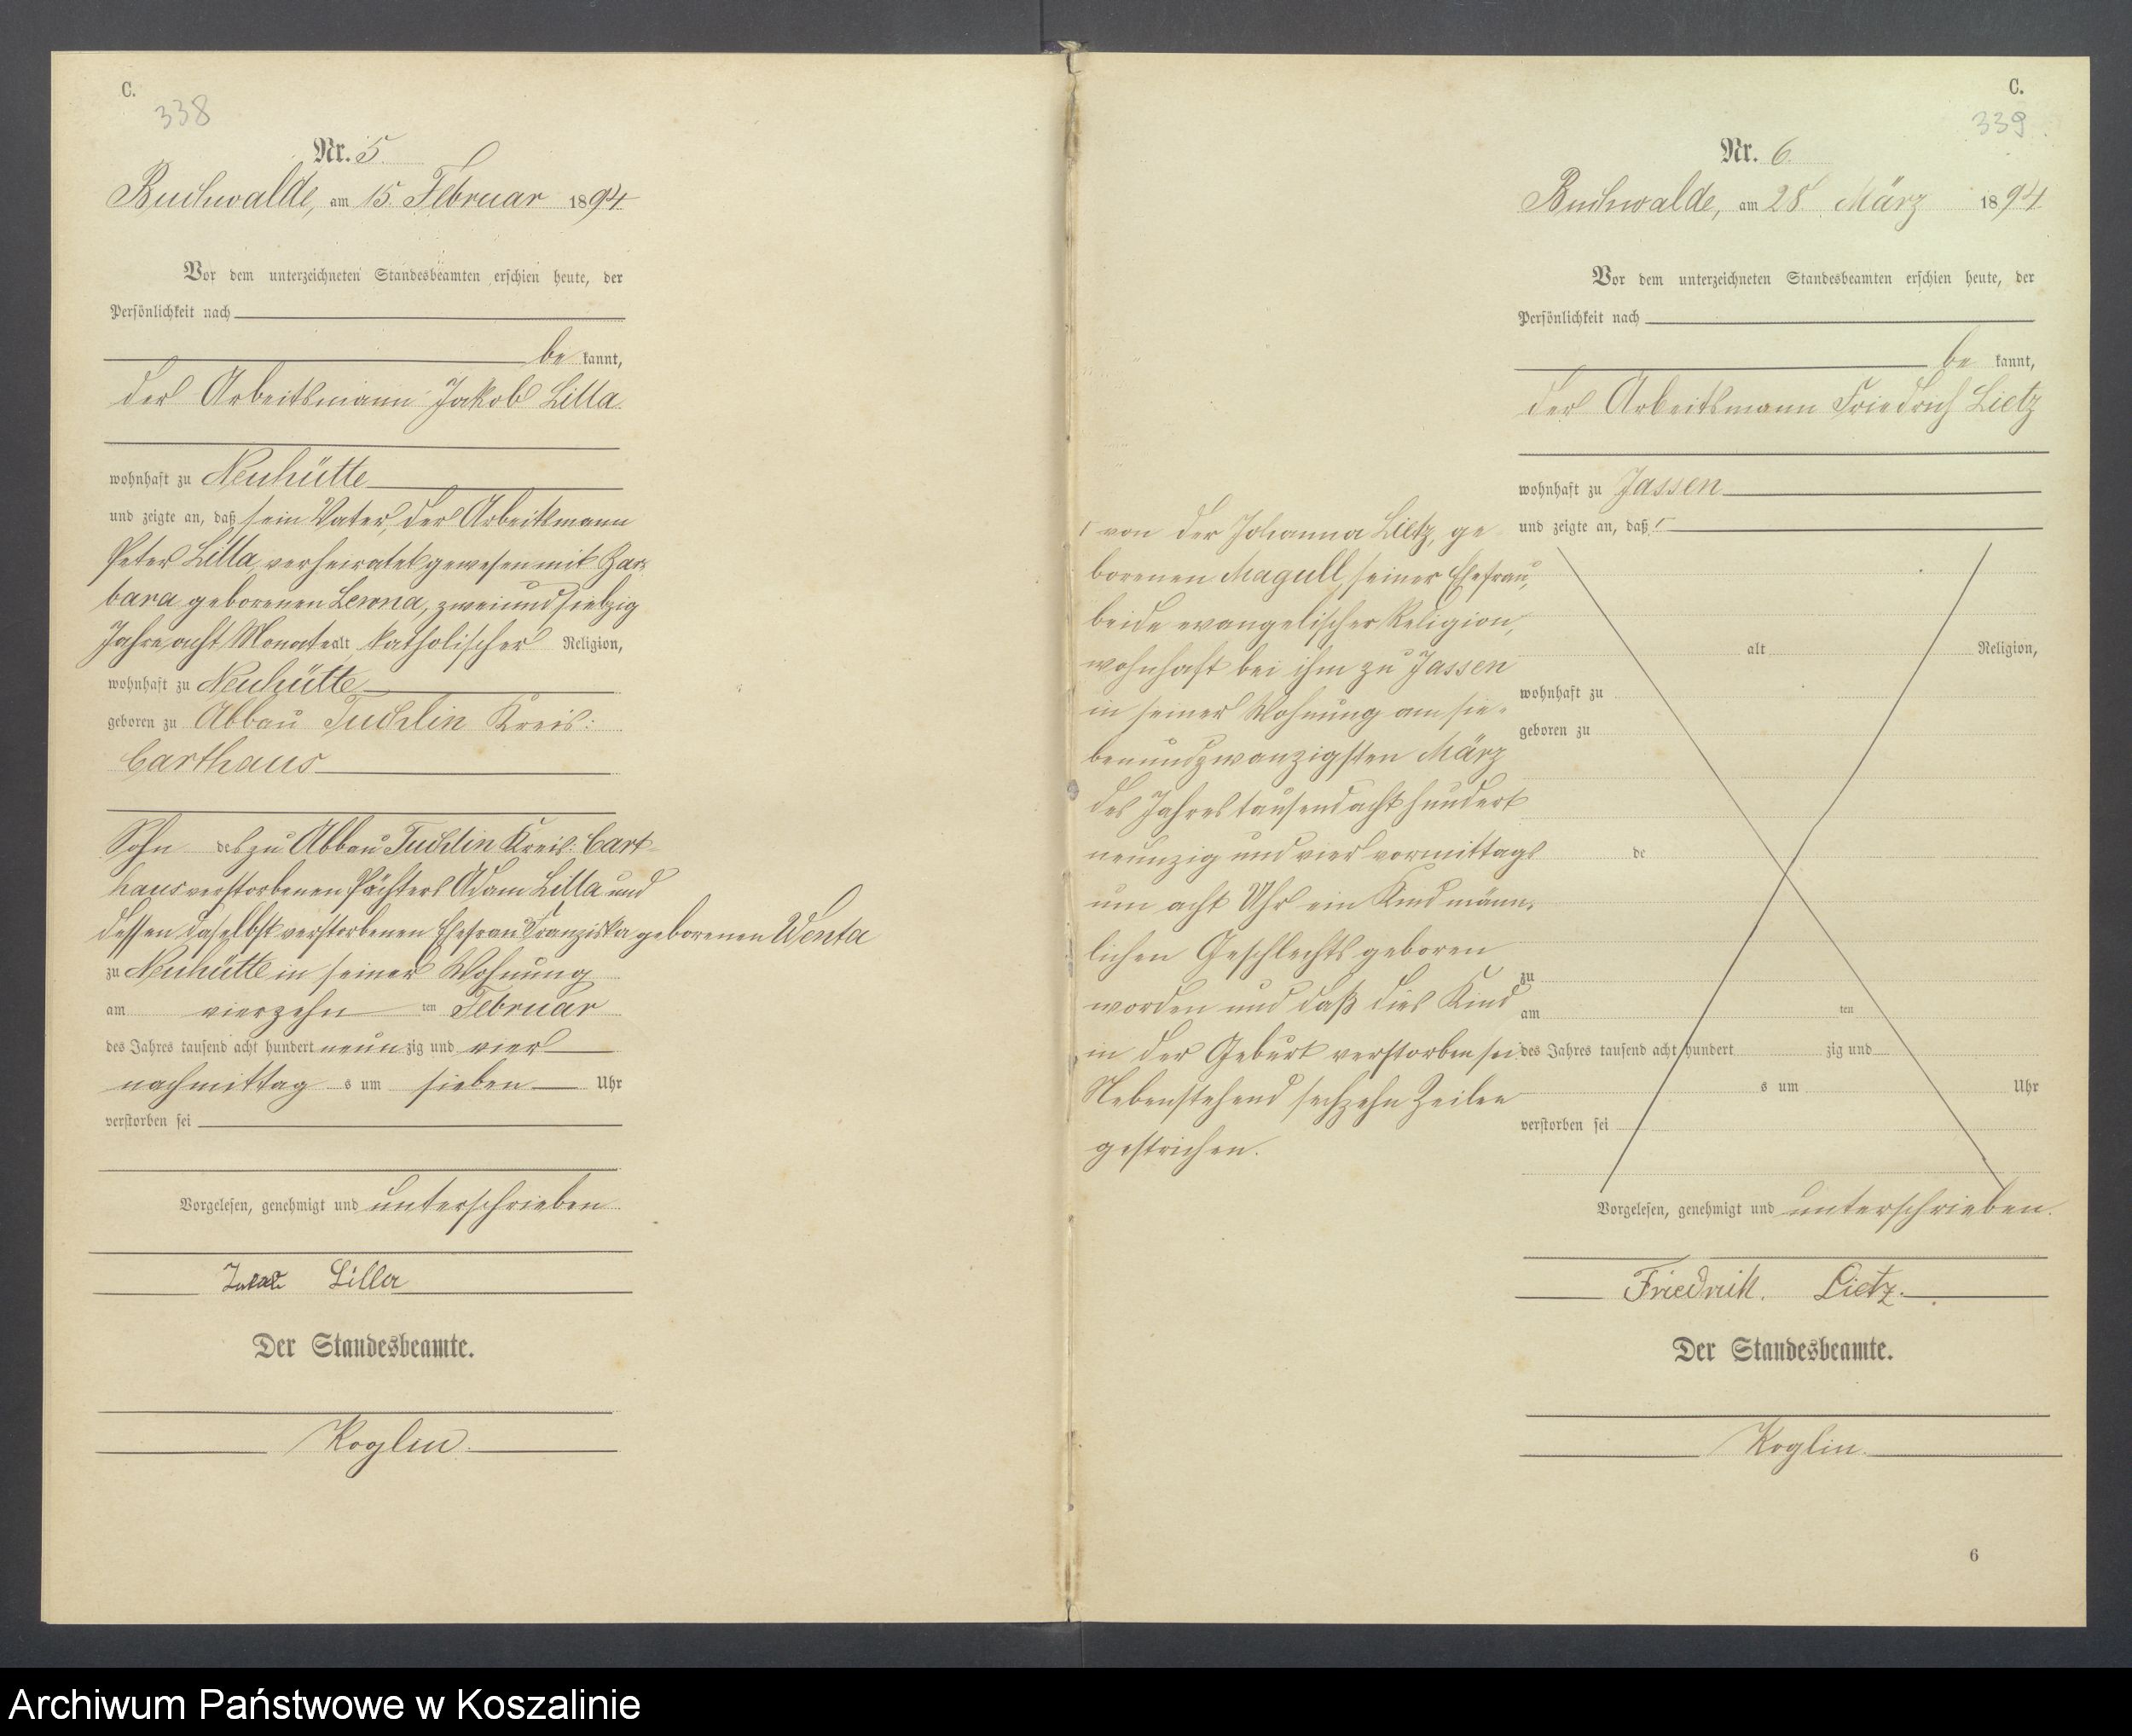 C.
338
Nr. 5.
Buchwalde, am 15. Februar 1894
Vor dem unterzeichneten Standesbeamten erschien heute, der
Persönlichkeit nach
be kannt,
der Arbeitsmann Jakob Lilla
wohnhaft zu Neuhütte
und zeigte an, daß sein Vater, der Arbeitsmann
Peter Lilla, verheiratet gewesen mit Bar-
bara geborenen Lewna, zweiundsiebzig
Jahre, acht Monate alt, katholischer Religion,
wohnhaft zu Neuhütte
geboren zu Abbau Tuchlin Kreis:
Carthaus
Sohn des zu Abbau Tuchlin Kreis: Cart-
haus verstorbenen Pächters Adam Lilla und
dessen daselbst verstorbenen Ehefrau Franziska geborenen Wenta
zu Neuhütte in seiner Wohnung
am vierzehn ten Februar
des Jahres tausend acht hundert neun zig und vier
nachmittag s um sieben Uhr
verstorben sei
Vorgelesen, genehmigt und unterschrieben.
Lilla
Der Standesbeamte.
Koglin.
C.
339
Nr. 6.
Buchwalde, am 28. März 1894
Vor dem unterzeichneten Standesbeamten erschien heute, der
Persönlichkeit nach
be kannt,
der Arbeitsmann Friedrich Lietz
wohnhaft zu Jassen
und zeigte an, daß Γ
Γ von der Johanna Lietz, ge-
borenen Magull, seiner Ehefrau,
beide evangelischer Religion,
wohnhaft bei ihm zu Jassen
in seiner Wohnung am sie-
benundzwanzigsten März
des Jahres tausend acht hundert
neunzig und vier vormittags
um acht Uhr ein Kind männ-
lichen Geschlechts geboren
worden und daß dies Kind
in der Geburt verstorben sei.
Nebenstehend sechzehn Zeilen
gestrichen.
alt Religion,
wohnhaft zu
geboren zu
de
zu
am ten
des Jahres tausend acht hundert zig und
s um Uhr
verstorben sei
Vorgelesen, genehmigt und unterschrieben.
Friedrich. Lietz.
Der Standesbeamte.
Koglin.
6
Archiwum Państwowe w Koszalinie